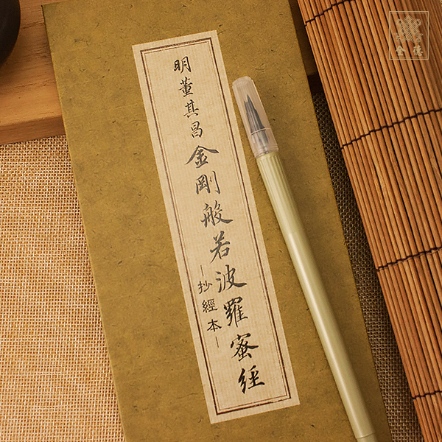 明董其昌金剛般若波羅蜜經
抄經本